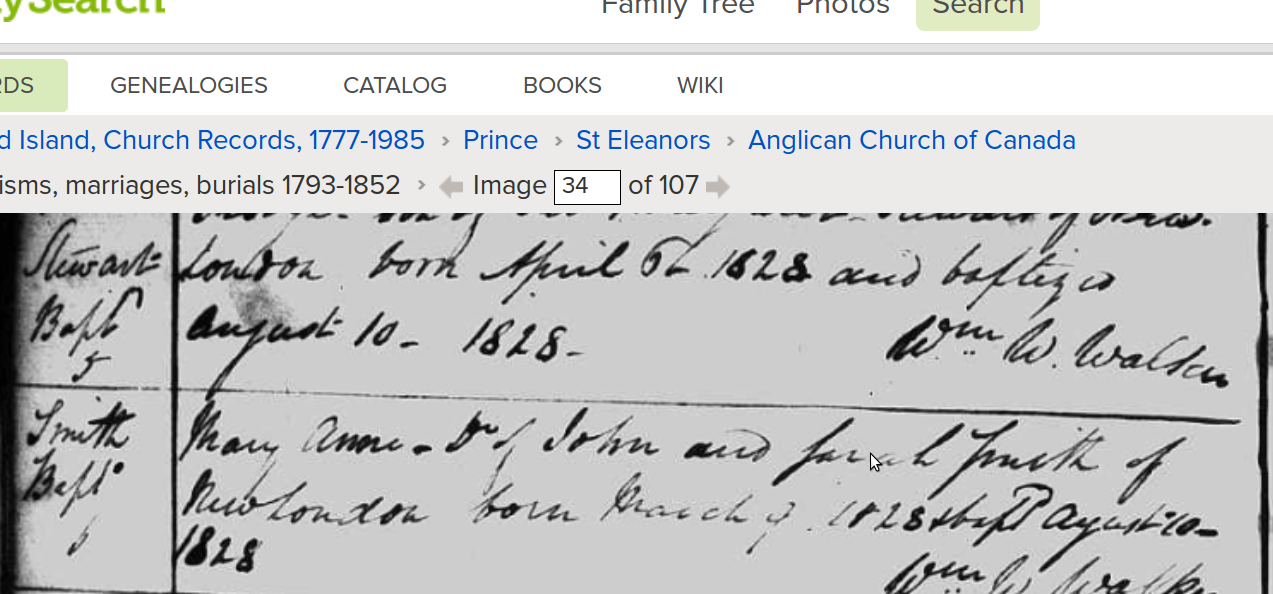 ySearch
Family Tree Photos Search
RDS GENEALOGIES CATALOG BOOKS WIKI
d Island, Church Records, 1777-1985 › Prince › St Eleanors › Anglican Church of Canada
isms, marriages, burials 1793-1852 › Image 34 of 107
Stewart London born April 6th 1828 and baptized
Bapt August 10 - 1828 - Wm W. Walker
5
Smith Mary Anne - Dr of John and Sarah Smith of
Bapt New London born March 9 1828 & bapt August 10 -
6 1828
Wm W. Walker